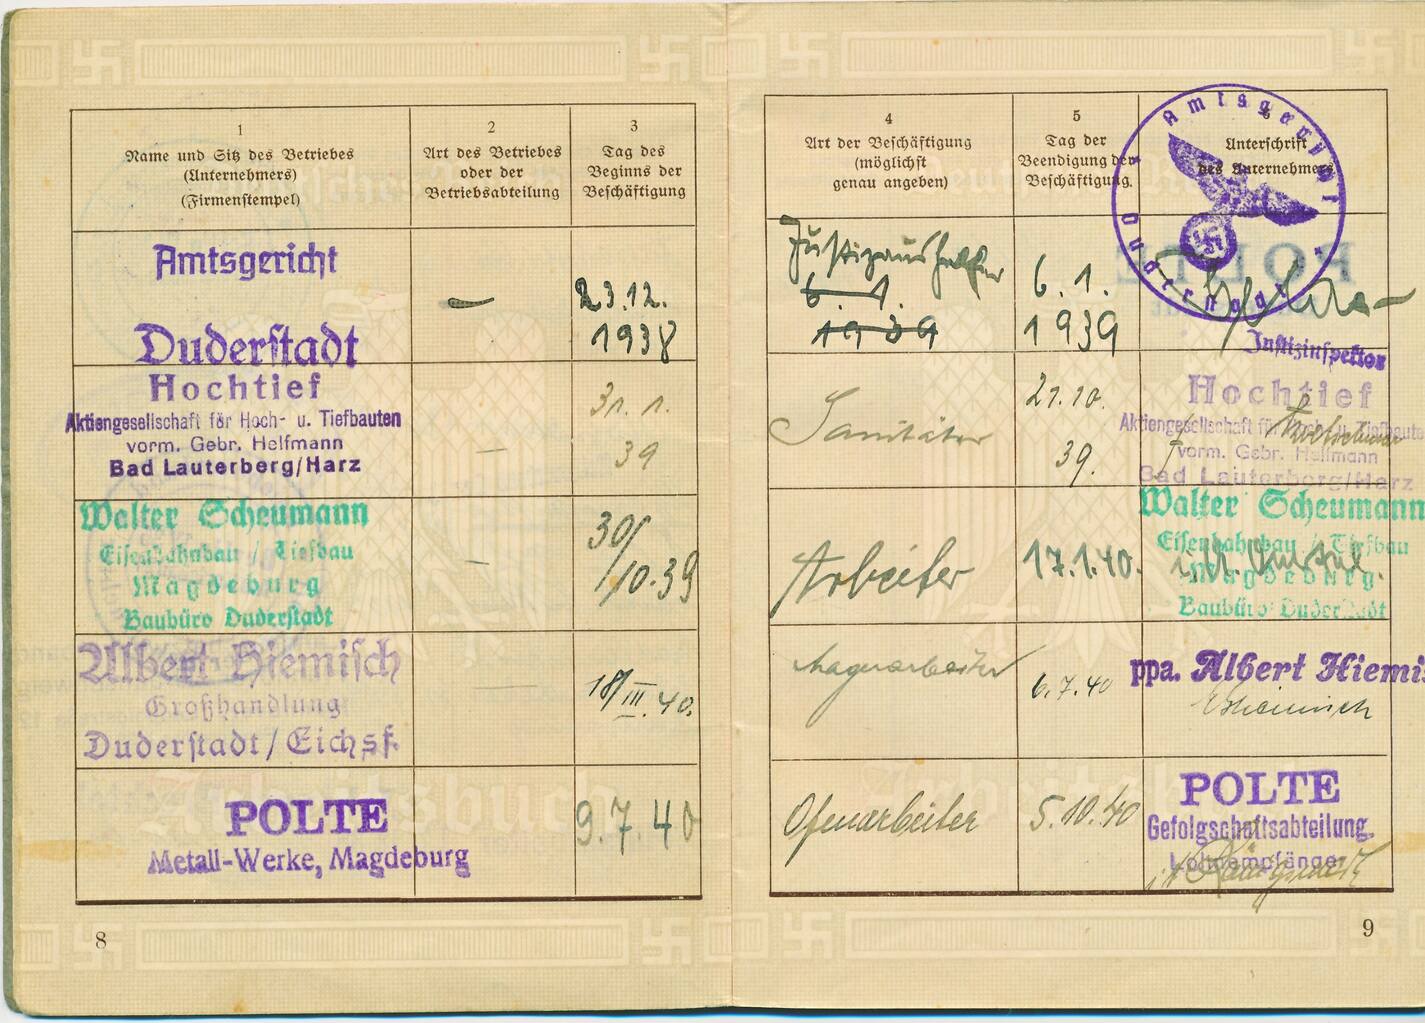 1
Name und Sitz des Betriebes
(Unternehmers)
(Firmenstempel)
2
Art des Betriebes
oder der
Betriebsabteilung
3
Tag des
Beginns der
Beschäftigung
Amtsgericht
Duderstadt
—
23.12.
1938
Hochtief
Aktiengesellschaft für Hoch- u. Tiefbauten
vorm. Gebr. Helfmann
Bad Lauterberg/Harz
—
31. 1.
39
Walter Scheumann
Eisenbahnbau / Tiefbau
Magdeburg
Baubüro Duderstadt
—
30/
/10.39
Albert Hiemisch
Großhandlung
Duderstadt/Eichsf.
—
18/III.40.
POLTE
Metall-Werke, Magdeburg
9.7.40
8
4
Art der Beschäftigung
(möglichst
genau angeben)
5
Tag der
Beendigung der
Beschäftigung.
6
Unterschrift
des Unternehmers
Amtsgericht
Duderstadt
Justizaushelfer
6. 1.
1939
6. 1.
1939
Justizinspektor
Sanitäter
21.10.
39.
Hochtief
Aktiengesellschaft für Hoch- u. Tiefbauten
vorm. Gebr. Helfmann
Bad Lauterberg/Harz
Arbeiter
17.1.40.
Walter Scheumann
Eisenbahnbau / Tiefbau
Magdeburg
Baubüro Duderstadt
Lagerarbeiter
6.7.40
ppa. Albert Hiemis
EHiemisch
Ofenarbeiter
5.10.40
POLTE
Gefolgschaftsabteilung
Lohnempfänger
9